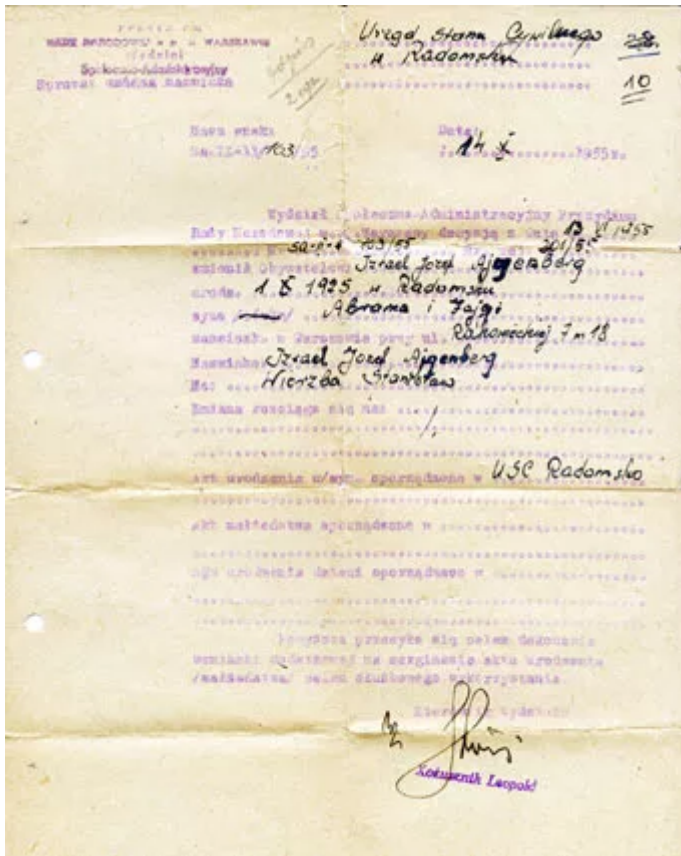 RADY NARODOWEJ WARSZAWIE
Wydział
Społeczno-Administracyjny
Sprawa: zmiana nazwiska
Urząd Stanu Cywilnego
w Radomsku
10
Nasz znak:
Data:
SA-II-1/103/55
14 X 1955 r.
Wydział Społeczno-Administracyjny Prezydium
Rady Narodowej m.st. Warszawy decyzją z dnia 13 VI 1955
SA-II-1 103/55 201/55
zmienił Obywatelowi Izrael Josed Ajgenberg
urodz. 1 X 1925 w Radomsku
syna Abrama i Fajgi
zamieszk. w Warszawie przy ul. Rakowieckiej 7 m 18
Nazwisko Izrael Josed Ajgenberg
Na: Wierzba Stanisław
Zmiana rozciąga się na:
akt urodzenia w/wym. sporządzono w USC Radomsko
akt małżeństwa sporządzono w
akt urodzenia dzieci sporządzono w
Powyższe przesyła się celem dokonania
wzmianki dodatkowej na marginesie aktu urodzenia
/małżeństwa/ celem służbowego wykorzystania.
Kierownik Wydziału
Kożusznik Leopold